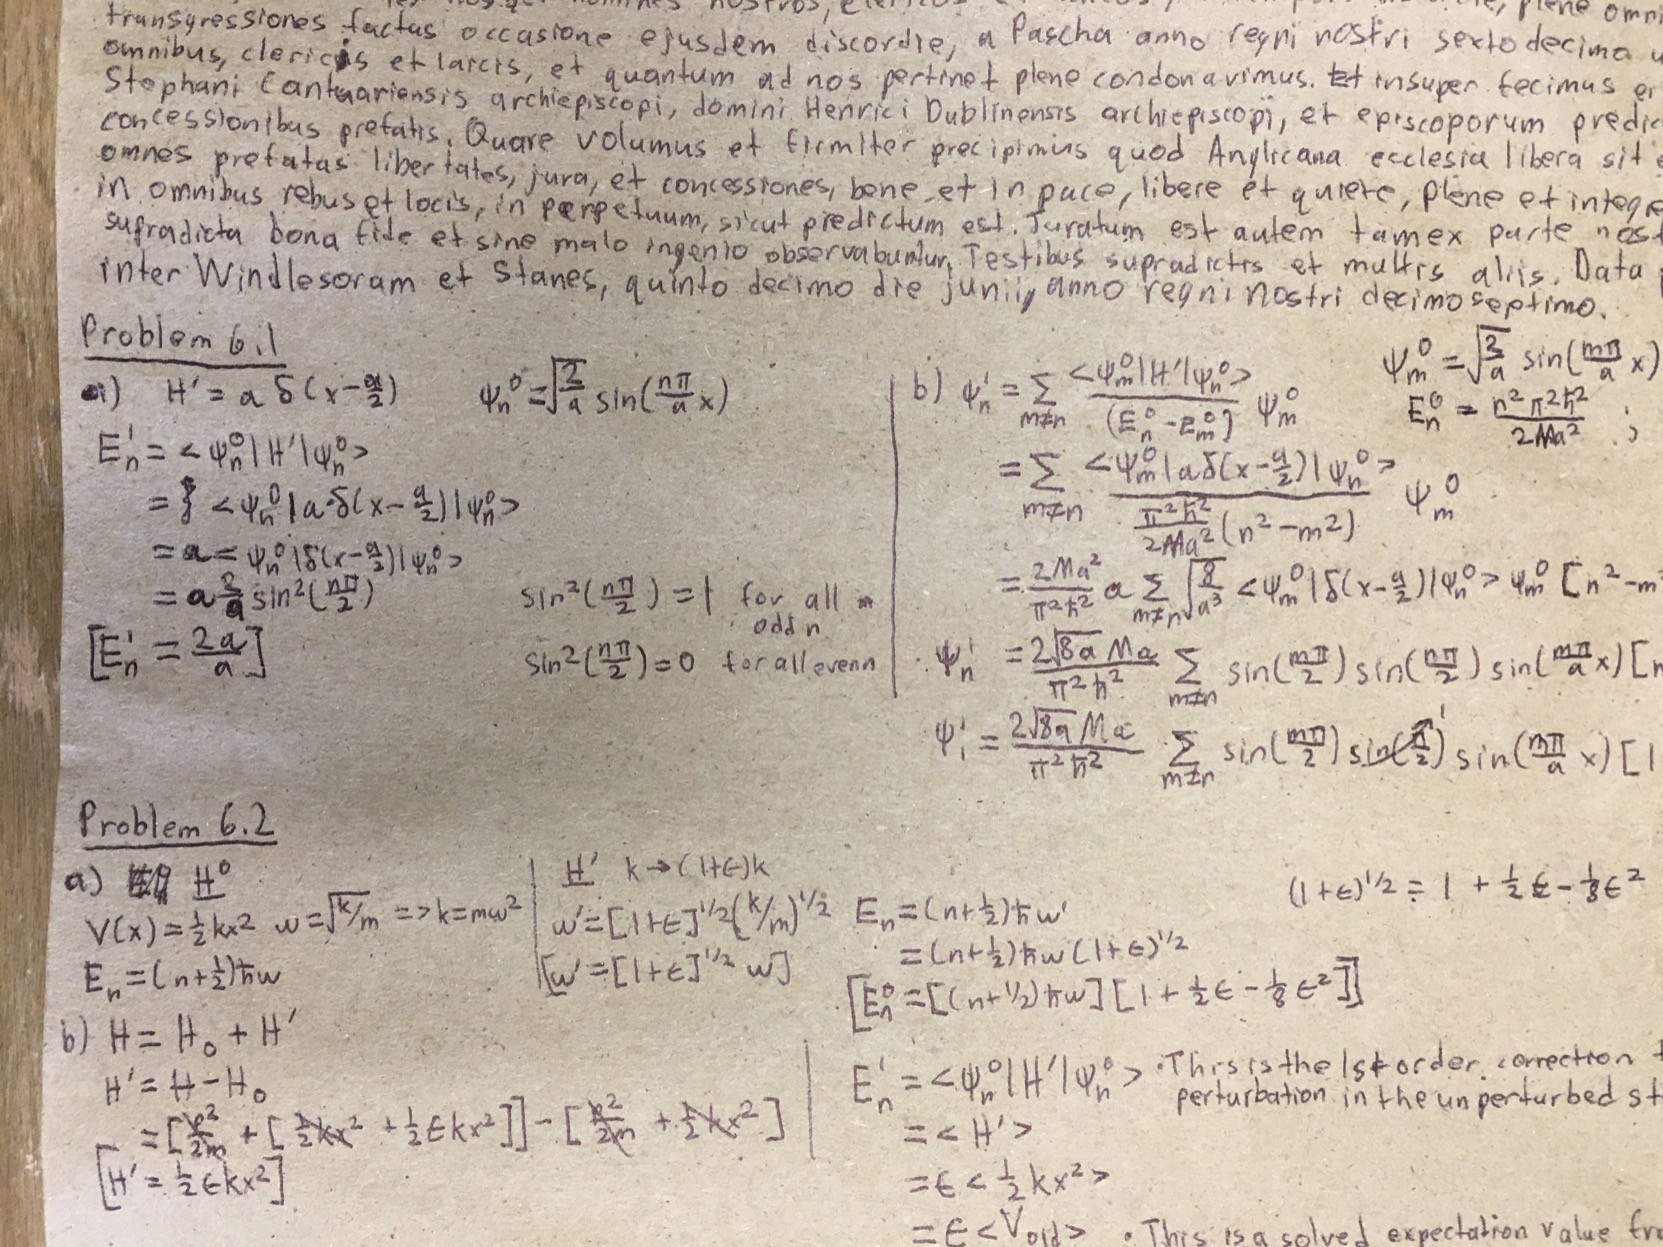 transgressiones factas occasione ejusdem discordie, a Pascha anno regni nostri sextodecimo
omnibus, clericis et laicis, et quantum ad nos pertinet plene condonavimus. Et insuper fecimus
Stephani Cantuariensis archiepiscopi, domini Henrici Dublinensis archiepiscopi, et episcoporum predic
concessionibus prefatis. Quare volumus et firmiter precipimus quod Anglicana ecclesia libera sit
omnes prefatas libertates, jura, et concessiones, bene et in pace, libere et quiete, plene et integre
in omnibus rebus et locis, in perpetuum, sicut predictum est. Juratum est autem tam ex parte nost
supradicta bona fide et sine malo ingenio observabuntur. Testibus supradictis et multis aliis. Data
inter Windlesoram et Stanes, quinto decimo die junii, anno regni nostri decimo septimo.
Problem 6.1
a) H' = a δ(x-a/2) ψn⁰ = √(2/a) sin(nπ/a x)
En¹ = <ψn⁰|H'|ψn⁰>
= <ψn⁰|a δ(x-a/2)|ψn⁰>
= a <ψn⁰|δ(x-a/2)|ψn⁰>
= a 2/a sin²(nπ/2) sin²(nπ/2) = 1 for all odd n
[En¹ = 2a/a] sin²(nπ/2) = 0 for all even n
b) ψn¹ = Σ m≠n <ψm⁰|H'|ψn⁰>/(En⁰-Em⁰) ψm⁰
ψm⁰ = √(2/a) sin(mπ/a x)
En⁰ = n²π²ħ²/2Ma² ;
= Σ m≠n <ψm⁰|aδ(x-a/2)|ψn⁰>/(π²ħ²/2Ma² (n²-m²)) ψm⁰
= 2Ma²/π²ħ² a Σ m≠n √(8/a³) <ψm⁰|δ(x-a/2)|ψn⁰> ψm⁰ [n²-m²
ψn¹ = 2√8a Ma/π²ħ² Σ m≠n sin(mπ/2) sin(nπ/2) sin(mπ/a x) [n
ψ₁¹ = 2√8a Ma/π²ħ² Σ m≠n sin(mπ/2) sin(π/2)¹ sin(mπ/a x) [1
Problem 6.2
a) H⁰
V(x) = ½kx² w = √k/m => k = mw²
En = (n+½)ħw
H' k → (1+ε)k
w' = [1+ε]^1/2 (k/m)^1/2
[w' = [1+ε]^1/2 w]
En = (n+½)ħw'
= (n+½)ħw (1+ε)^1/2
[En⁰ = [(n+1/2)ħw][1 + ½ε - ⅛ε²]]
(1+ε)^1/2 = 1 + ½ε - ⅛ε²
b) H = H₀ + H'
H' = H - H₀
= [p²/2m + [½kx² + ½εkx²]] - [p²/2m + ½kx²]
[H' = ½εkx²]
En¹ = <ψn⁰|H'|ψn⁰> • This is the 1st order correction
perturbation in the unperturbed st
= <H'>
= ε <½kx²>
= ε <Vold> • This is a solved expectation value fr